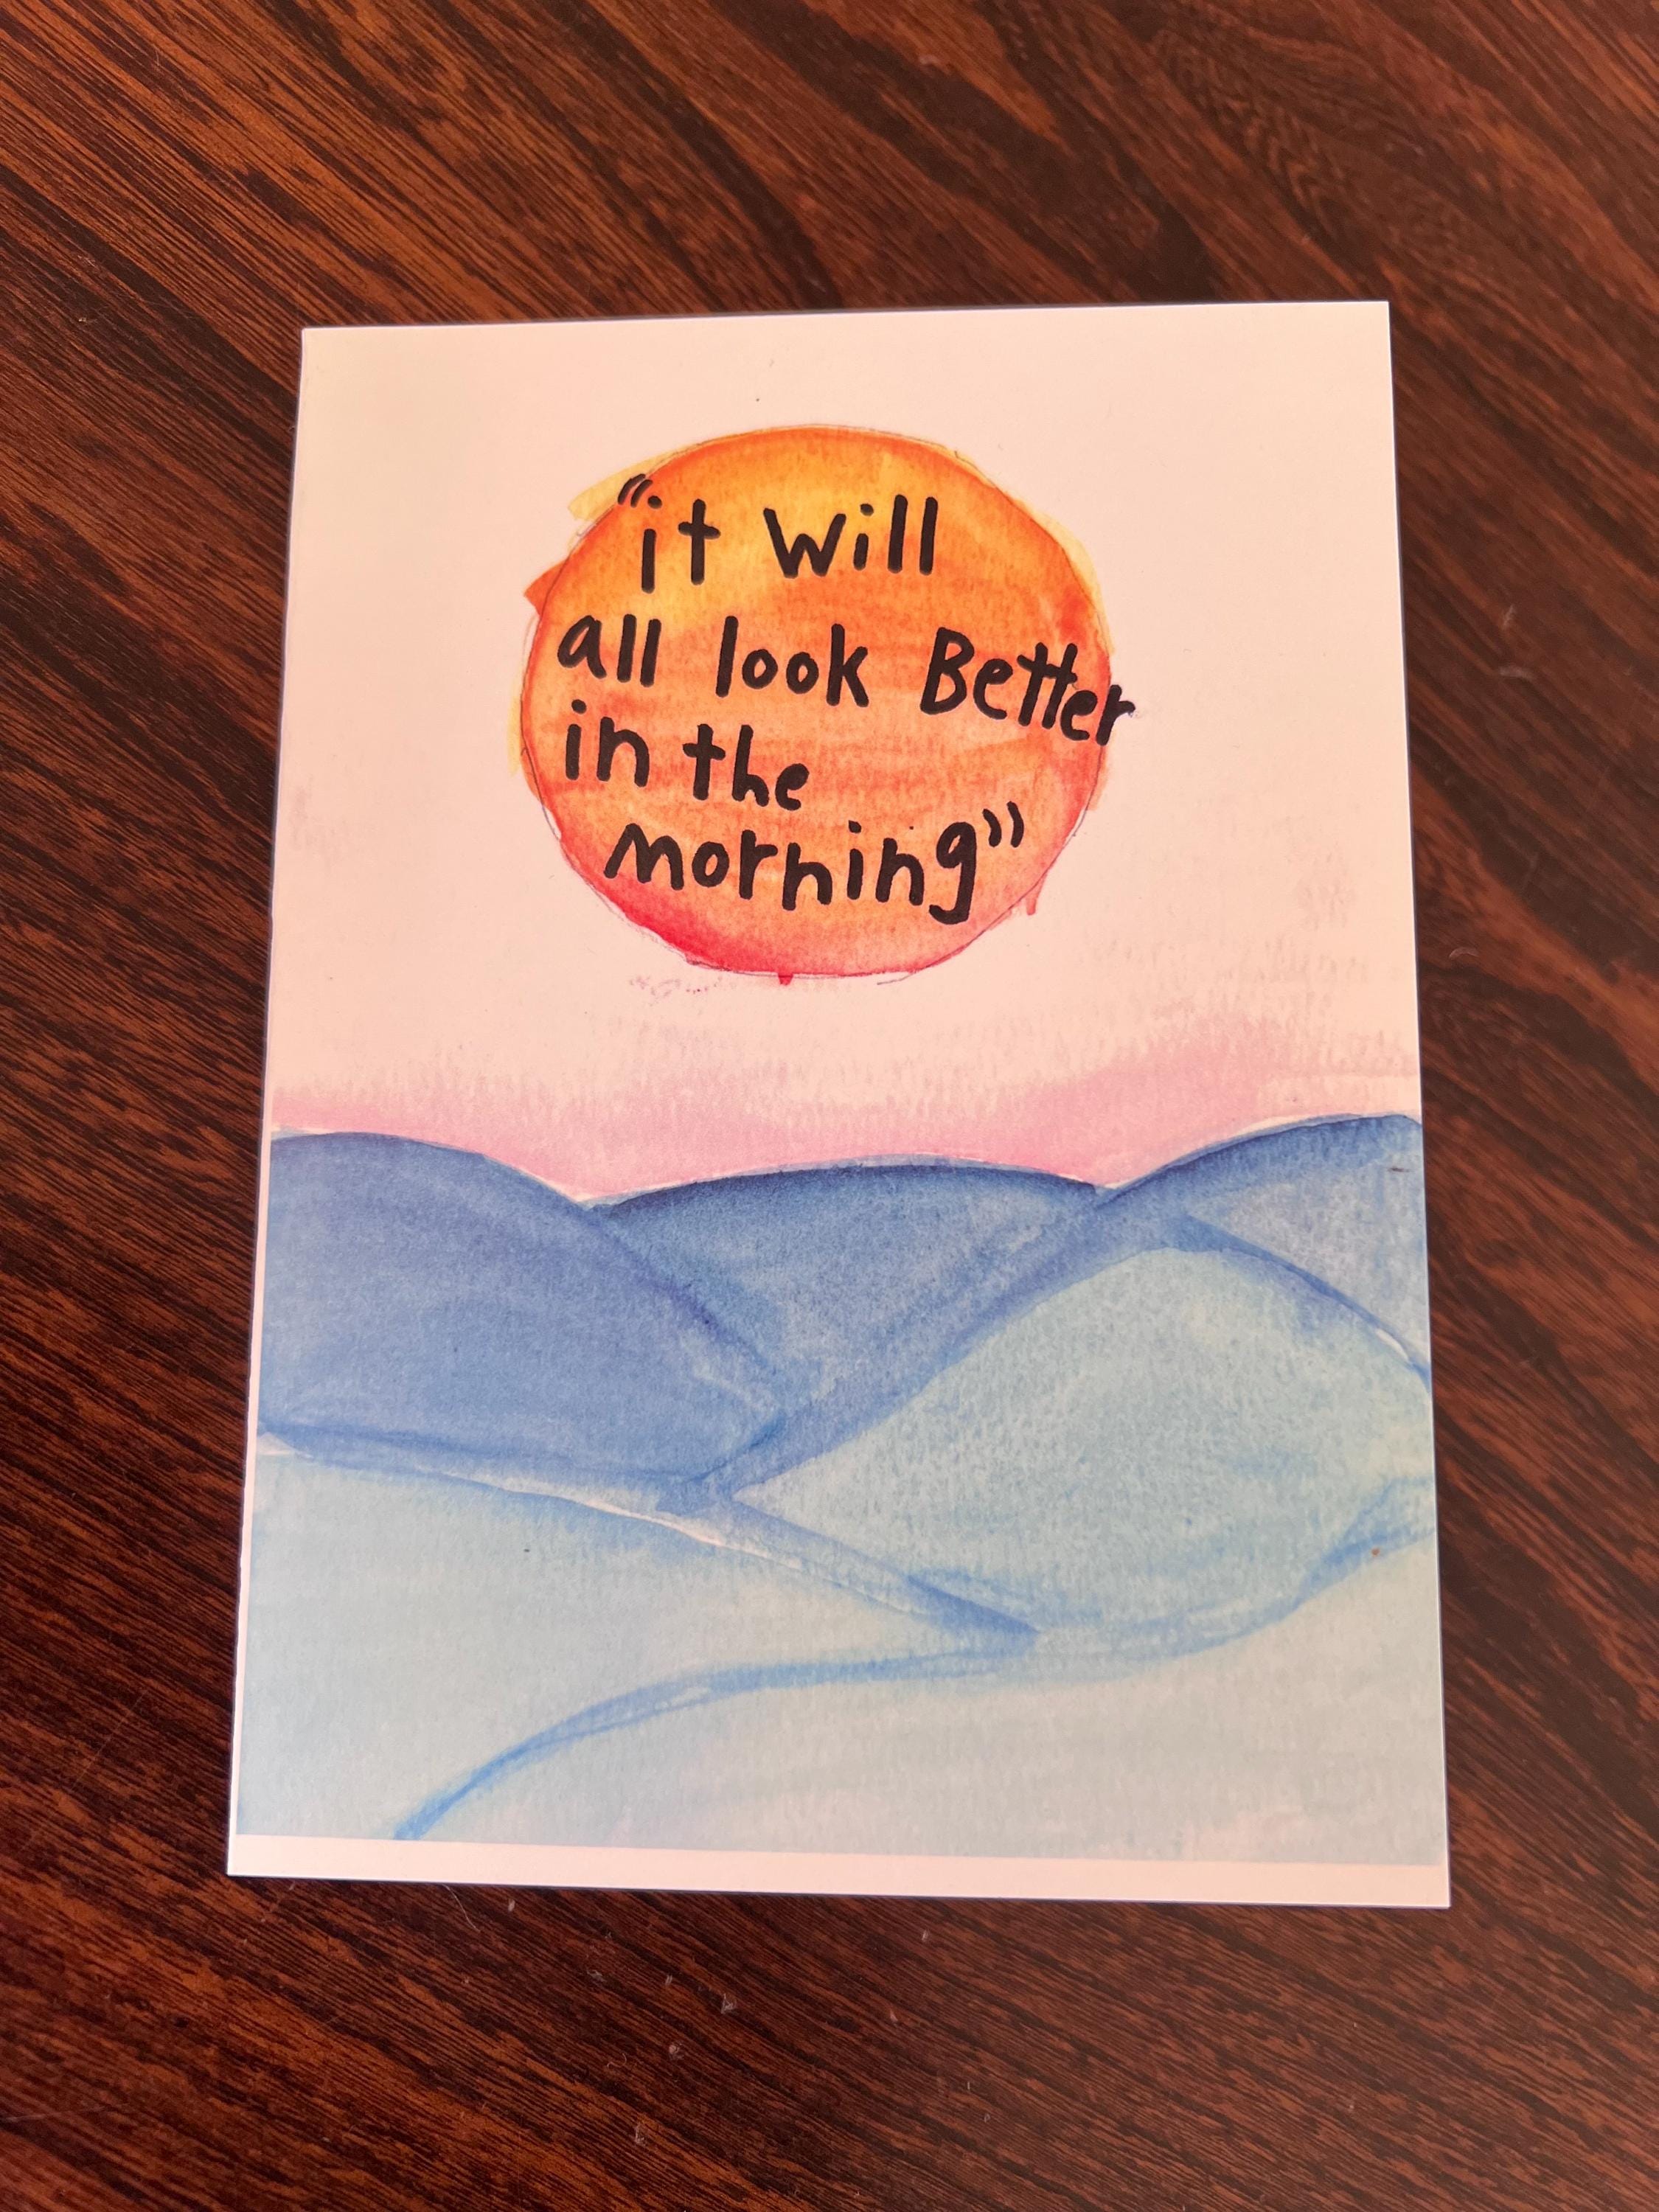 “it will
all look Better
in the
morning”